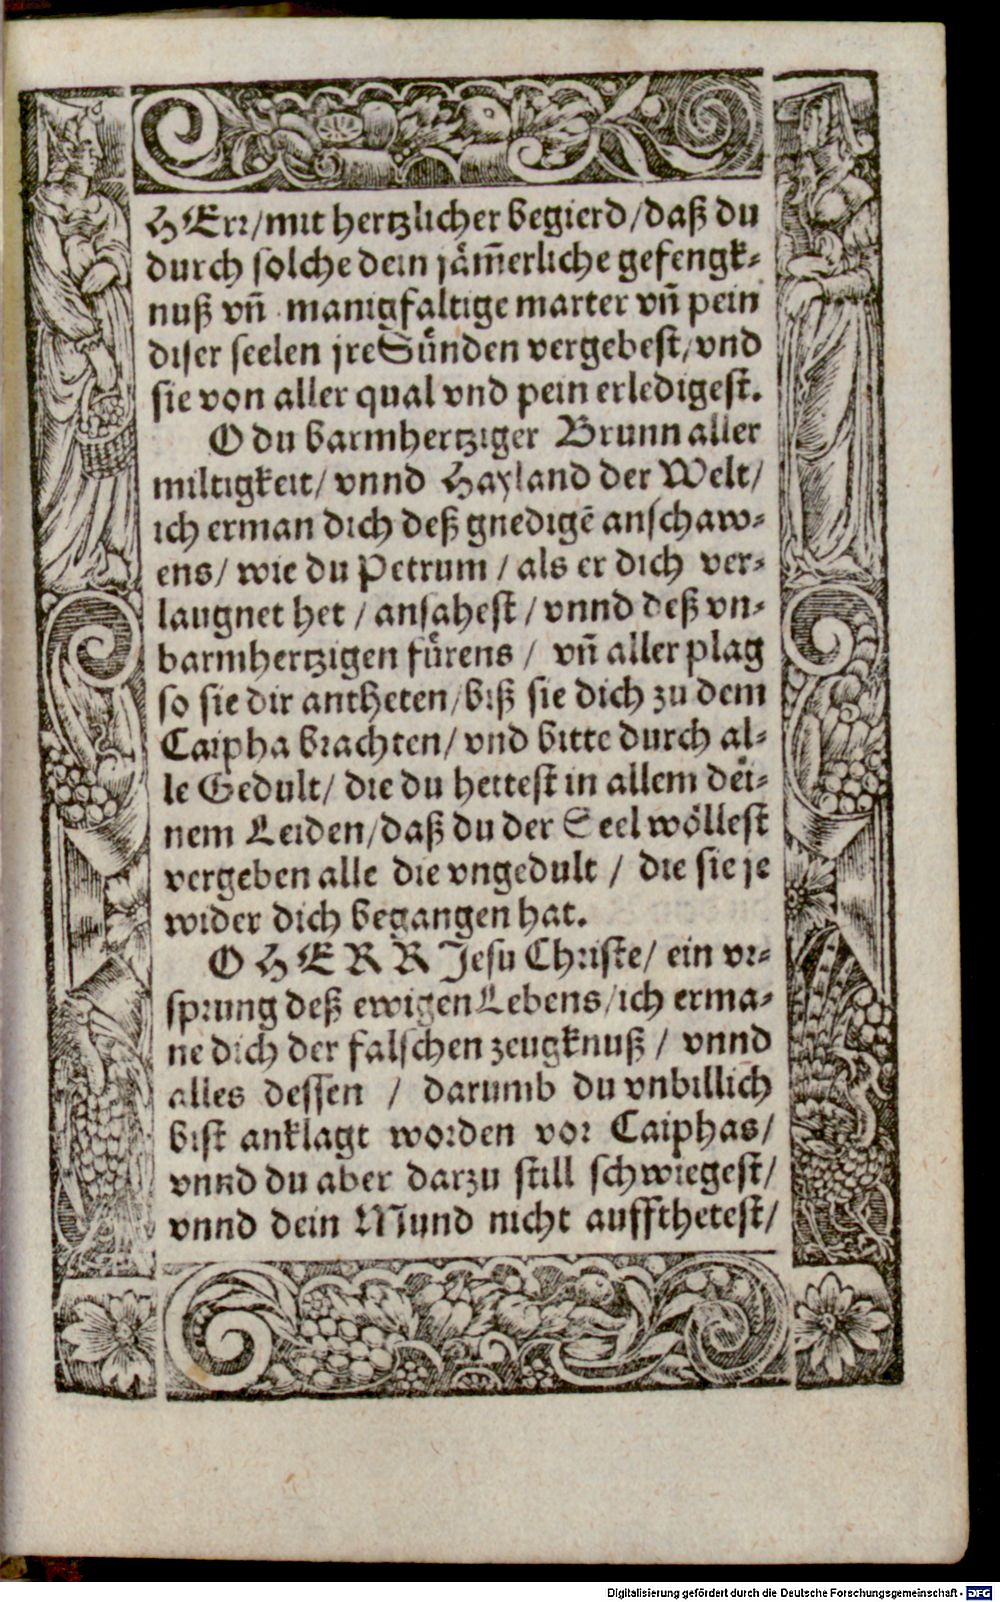 HErr/mit hertzlicher begierd/daß du
durch solche dein jäm̄erliche gefengk-
nuß vn̄ manigfaltige marter vn̄ pein
diser seelen jre Sünden vergebest/vnd
sie von aller qual vnd pein erledigest.
O du barmhertziger Brunn aller
miltigkeit/ vnnd Hayland der Welt/
ich erman dich deß gnedigē anschaw-
ens/ wie du Petrum / als er dich ver-
laugnet het / ansahest / vnnd deß vn-
barmhertzigen fürens / vn̄ aller plag
so sie dir antheten/biß sie dich zu dem
Caipha brachten/ vnd bitte durch al-
le Gedult/ die du hettest in allem dei-
nem Leiden/daß du der Seel wöllest
vergeben alle die vngedult / die sie je
wider dich begangen hat.
O HERR Jesu Christe/ ein vr-
sprung deß ewigen Lebens/ich erma-
ne dich der falschen zeugknuß / vnnd
alles dessen / darumb du vnbillich
bist anklagt worden vor Caiphas/
vnnd du aber darzu still schwiegest/
vnnd dein Mund nicht auffthetest/
Digitalisierung gefördert durch die Deutsche Forschungsgemeinschaft - DFG